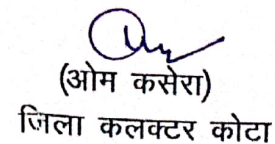 (ओम कसेरा)
जिला कलक्टर कोटा